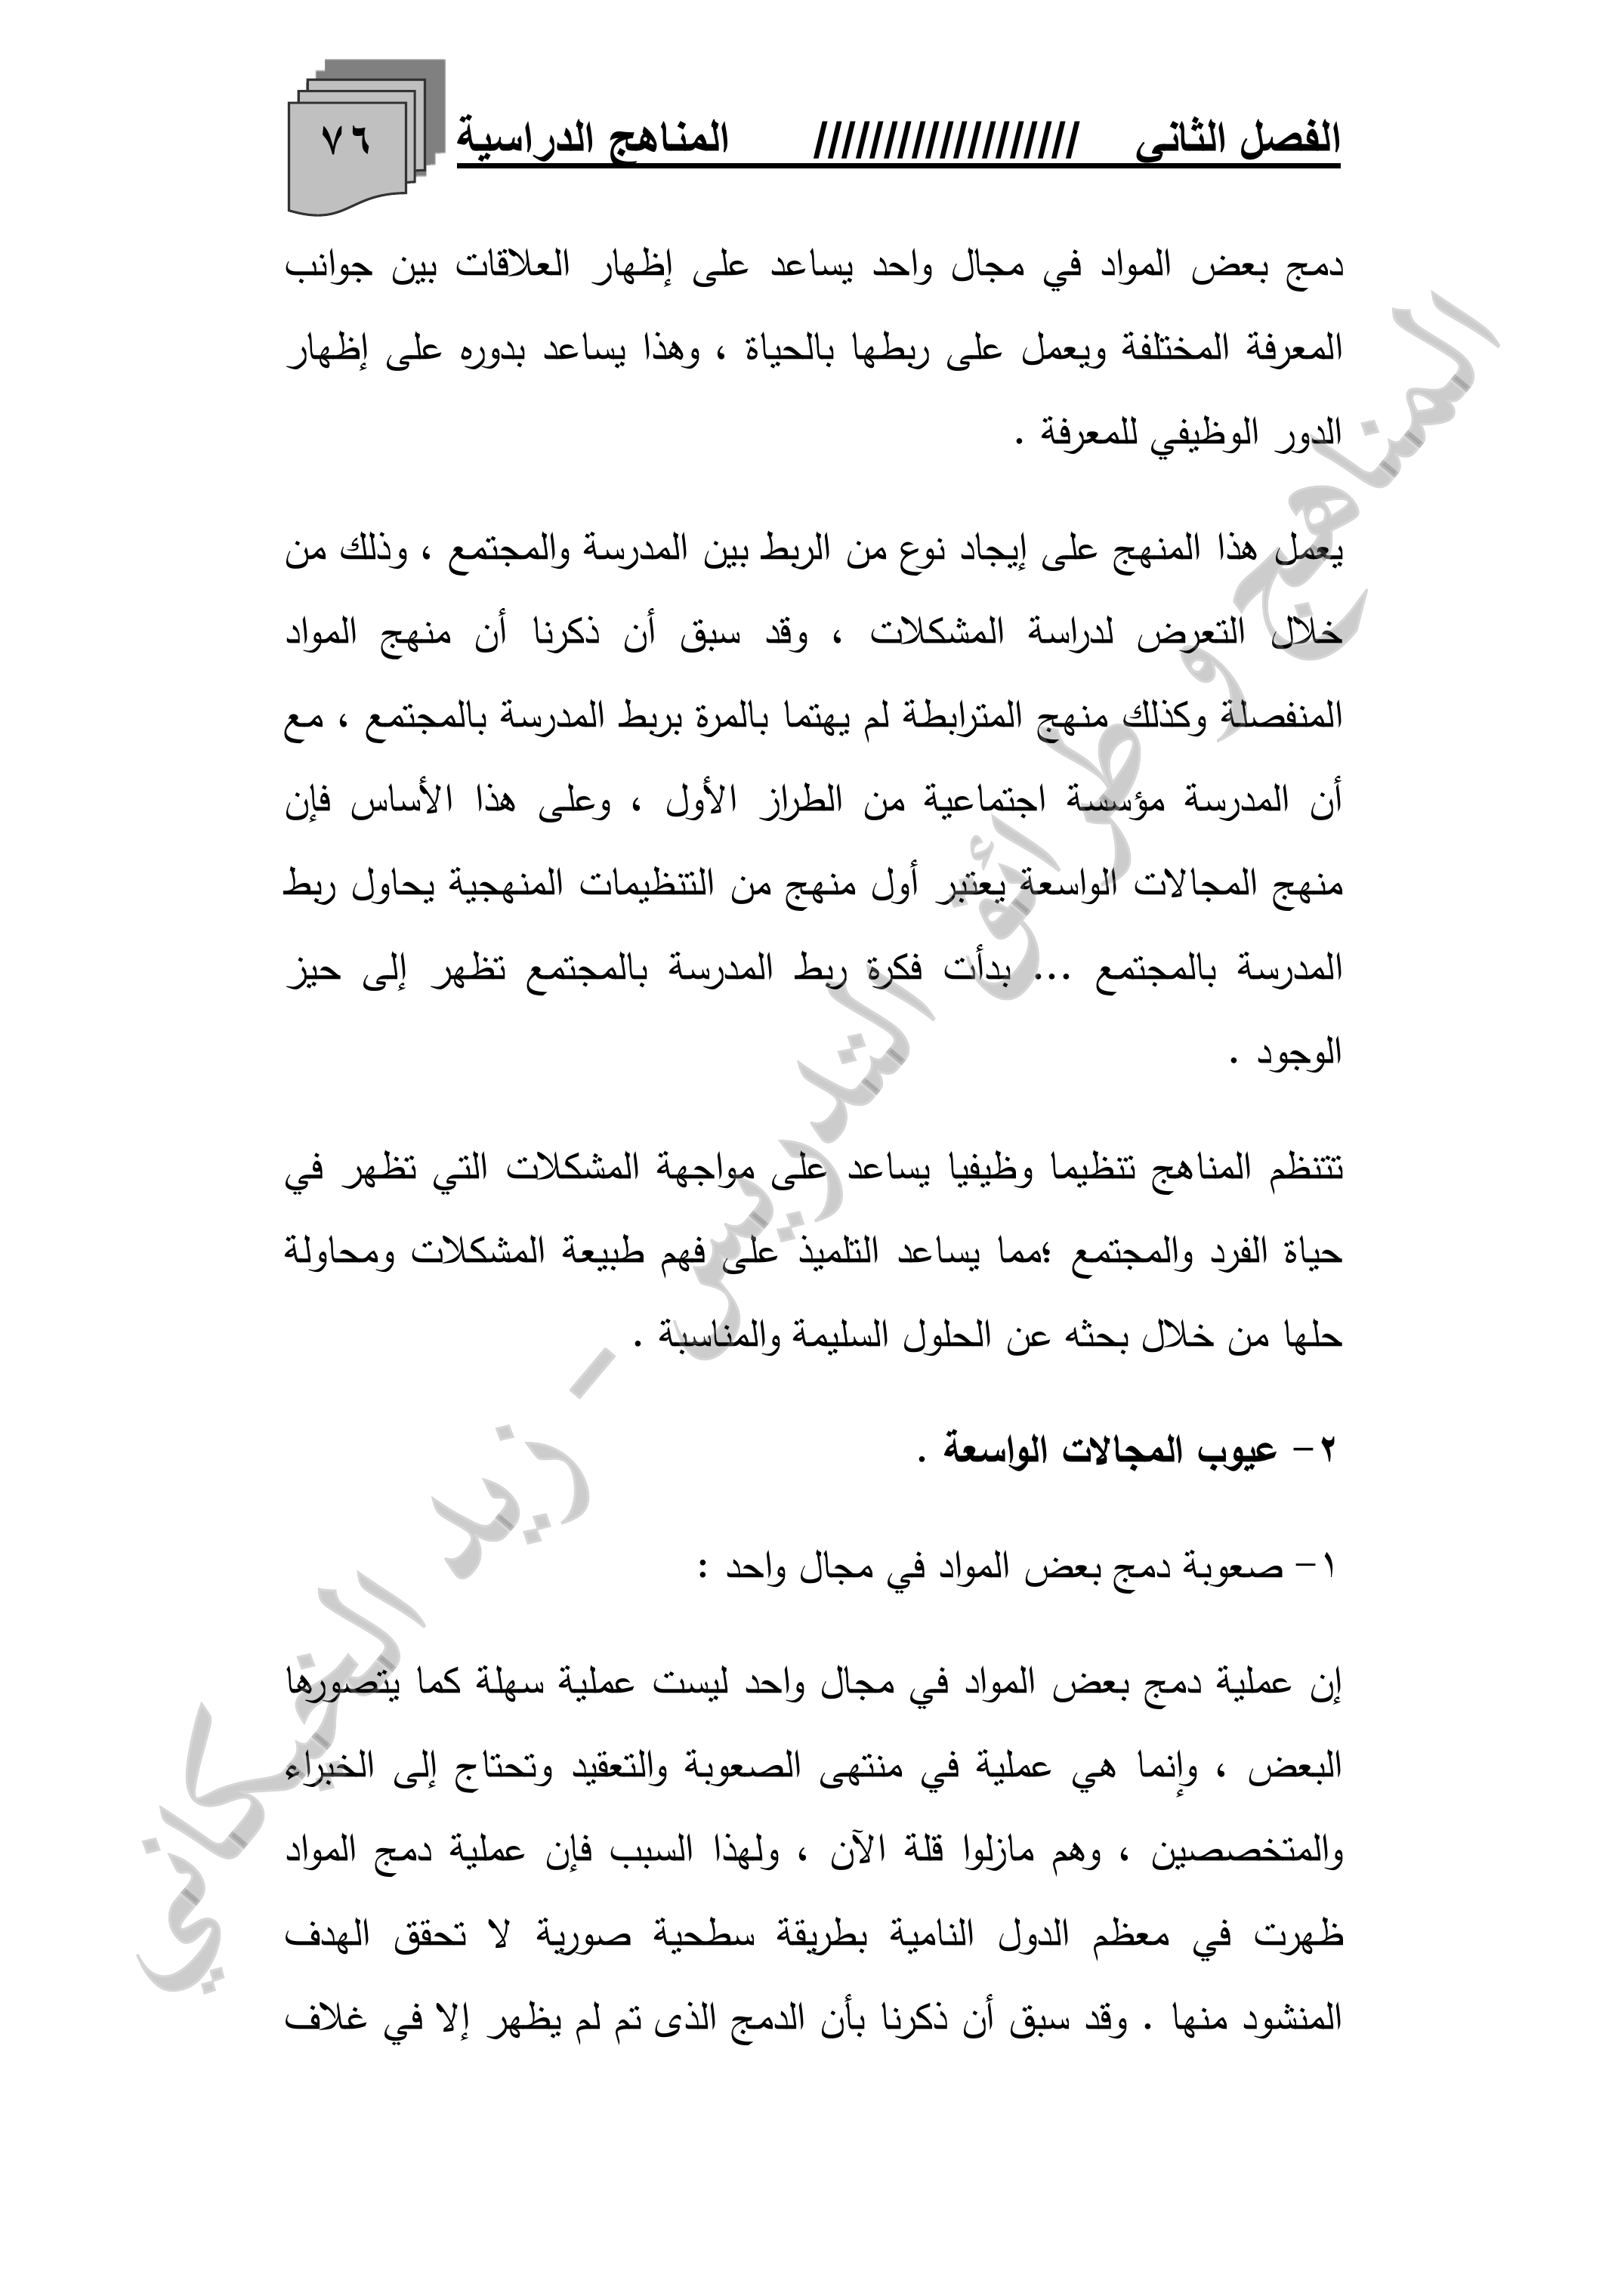 الفصل الثاني /////////////////// المناهج الدراسية
٧٦
دمج بعض المواد في مجال واحد يساعد على إظهار العلاقات بين جوانب
المعرفة المختلفة ويعمل على ربطها بالحياة ، وهذا يساعد بدوره على إظهار
الدور الوظيفي للمعرفة .
يعمل هذا المنهج على إيجاد نوع من الربط بين المدرسة والمجتمع ، وذلك من
خلال التعرض لدراسة المشكلات ، وقد سبق أن ذكرنا أن منهج المواد
المنفصلة وكذلك منهج المترابطة لم يهتما بالمرة بربط المدرسة بالمجتمع ، مع
أن المدرسة مؤسسة اجتماعية من الطراز الأول ، وعلى هذا الأساس فإن
منهج المجالات الواسعة يعتبر أول منهج من التنظيمات المنهجية يحاول ربط
المدرسة بالمجتمع ... بدأت فكرة ربط المدرسة بالمجتمع تظهر إلى حيز
الوجود .
تتنظم المناهج تنظيما وظيفيا يساعد على مواجهة المشكلات التي تظهر في
حياة الفرد والمجتمع ؛مما يساعد التلميذ على فهم طبيعة المشكلات ومحاولة
حلها من خلال بحثه عن الحلول السليمة والمناسبة .
٢- عيوب المجالات الواسعة .
١- صعوبة دمج بعض المواد في مجال واحد :
إن عملية دمج بعض المواد في مجال واحد ليست عملية سهلة كما يتصورها
البعض ، وإنما هي عملية في منتهى الصعوبة والتعقيد وتحتاج إلى الخبراء
والمتخصصين ، وهم مازلوا قلة الآن ، ولهذا السبب فإن عملية دمج المواد
ظهرت في معظم الدول النامية بطريقة سطحية صورية لا تحقق الهدف
المنشود منها . وقد سبق أن ذكرنا بأن الدمج الذى تم لم يظهر إلا في غلاف
المناهج و طرائق التدريس - زيد الخيكاني